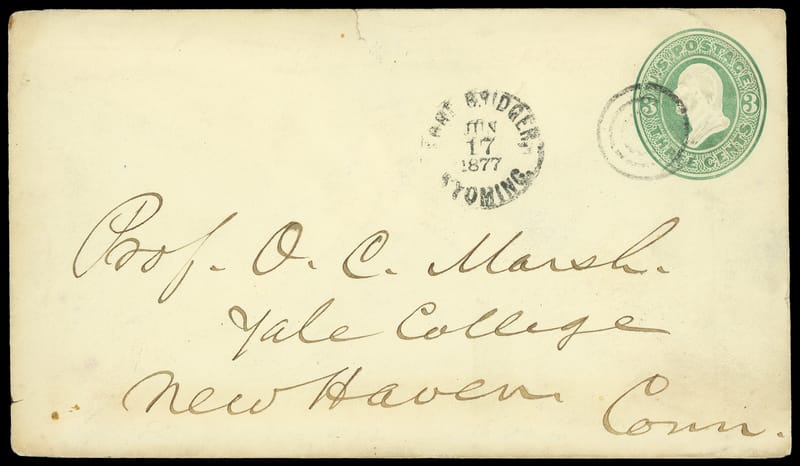 U.S. POSTAGE
3 3
THREE CENTS
FORT BRIDGER,
JUN
17
1877
WYOMING.
Prof. O. C. Marsh.
Yale College
New Haven.
Conn.